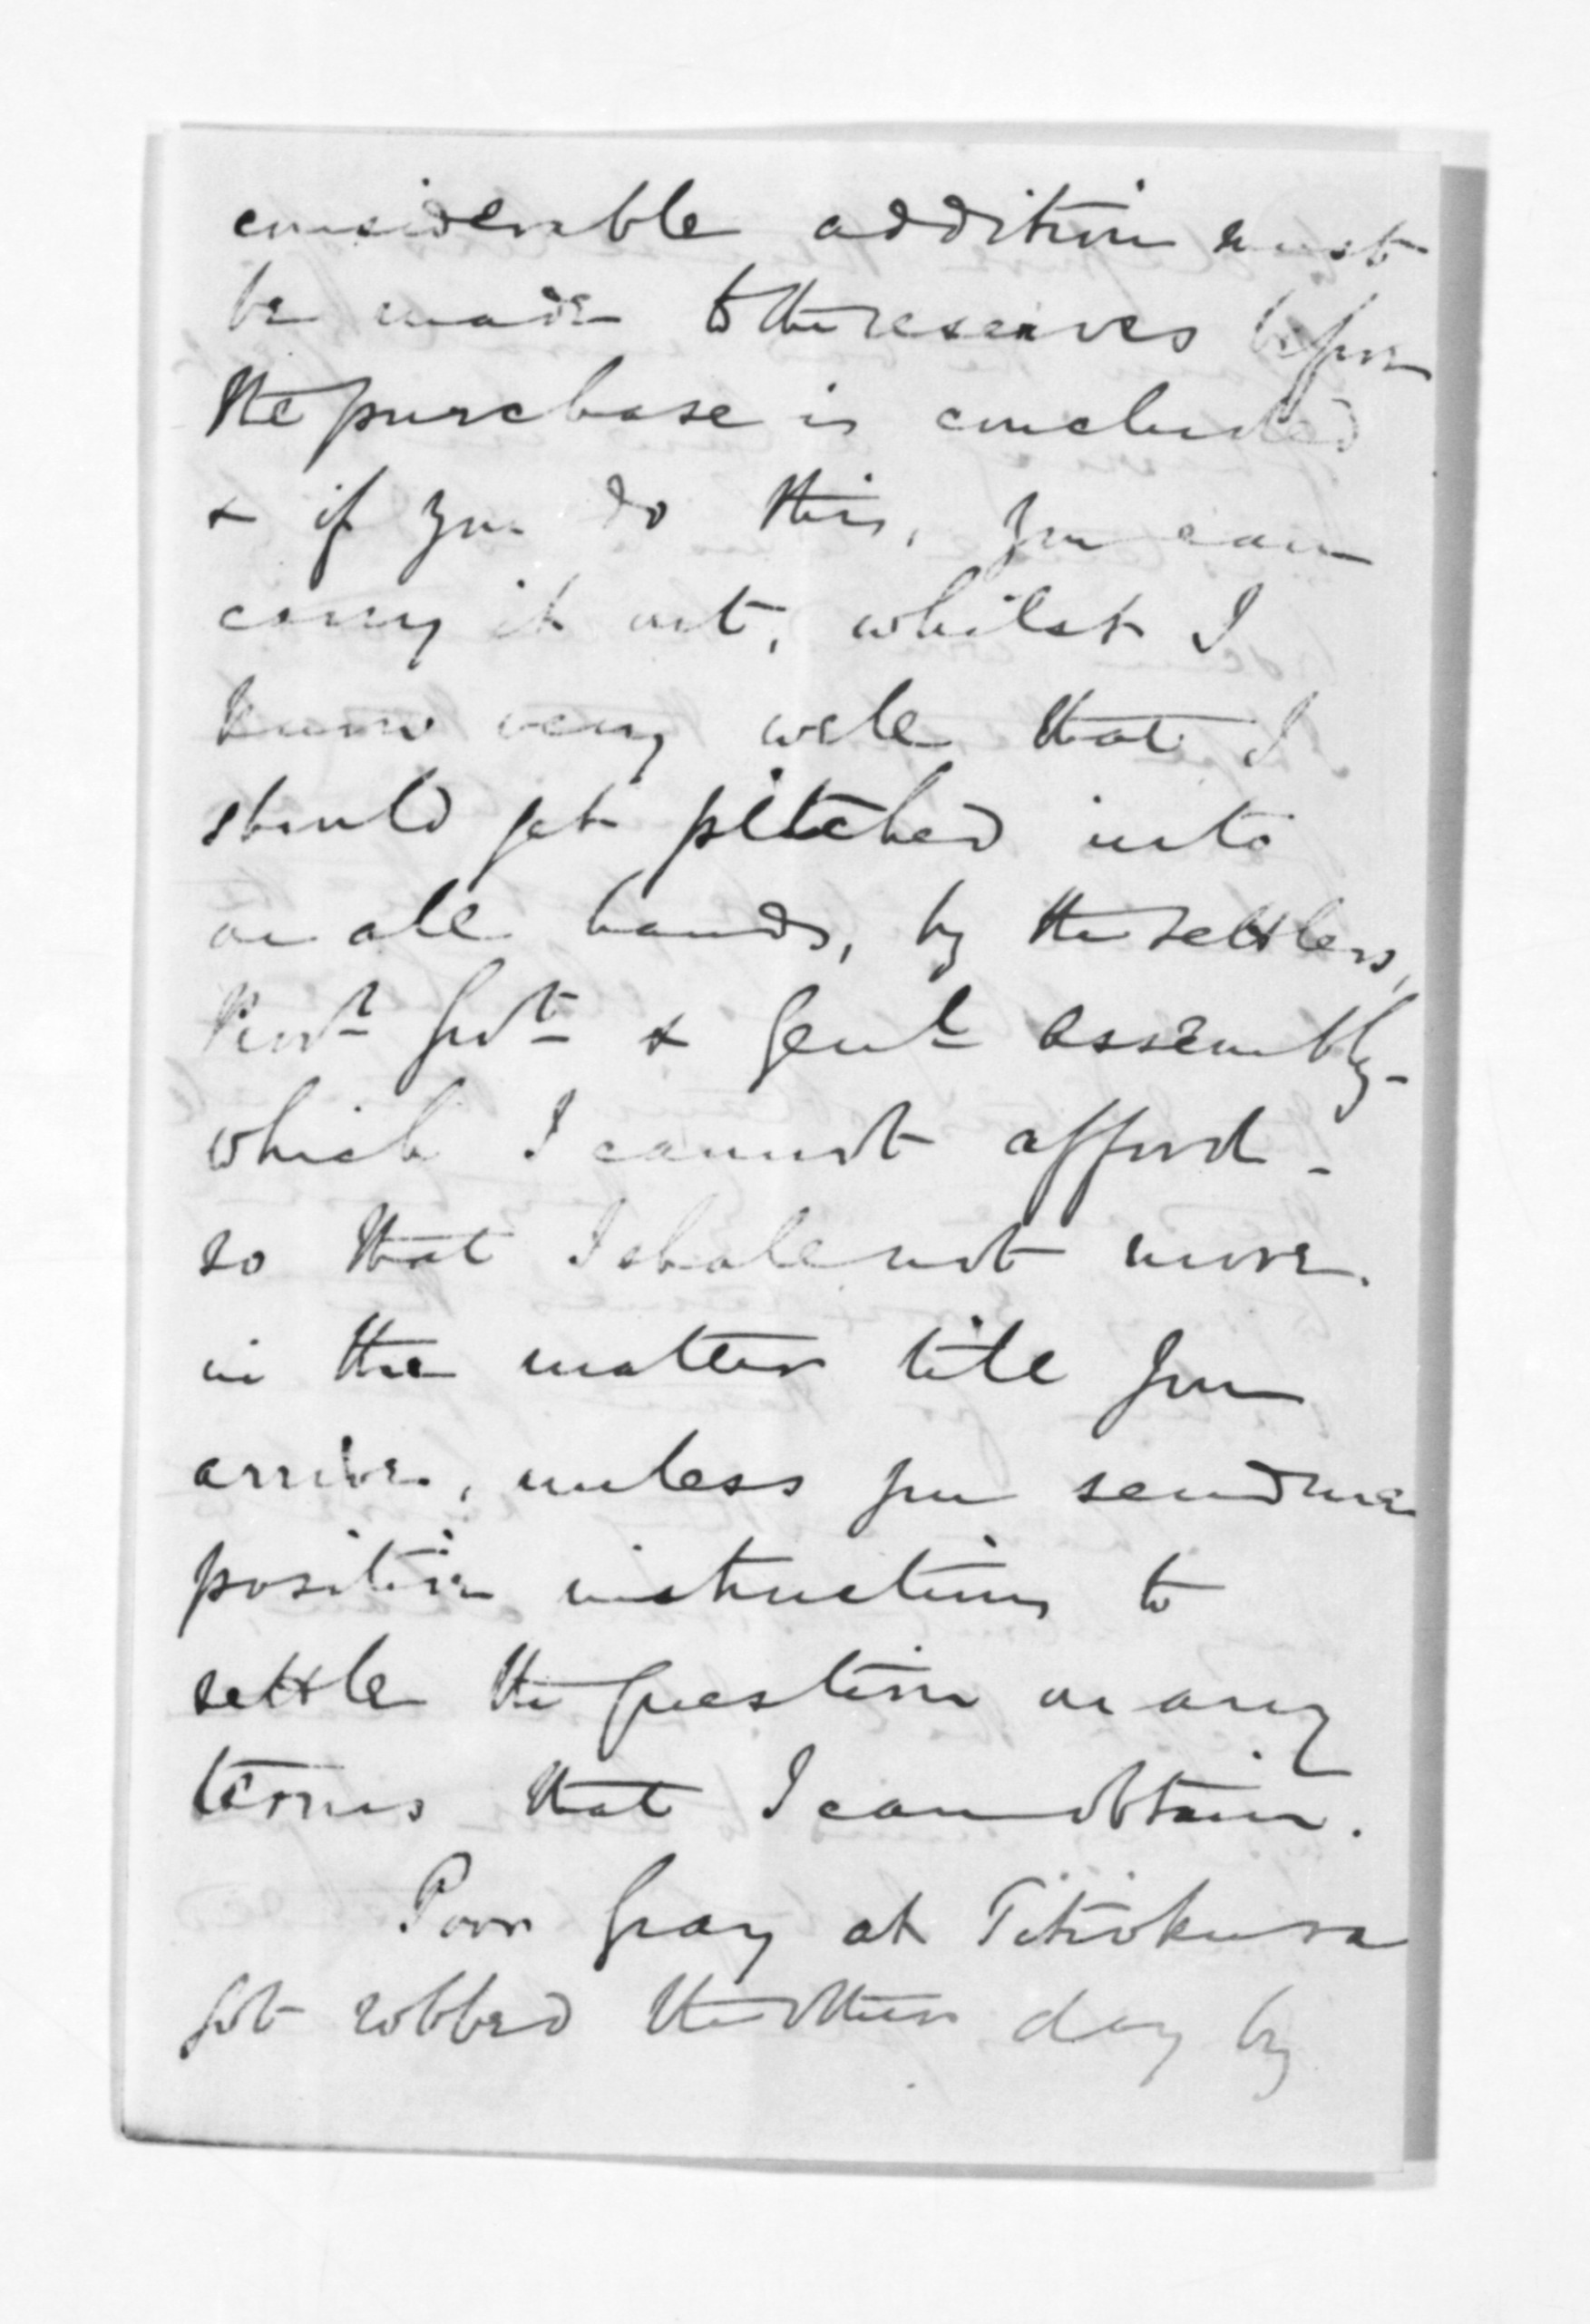 considerable addition must
be made to the reserves before
the purchase is concluded
& if you do this, you can
carry it out, whilst I
know very well that I
should get pitched into
on all hands, by the settlers,
Provl. Govt. & Genl. assembly -
which I cannot afford -
so that I shall not move
in the matter till you
arrive, unless you send me
positive instructions to
settle the question on any
terms that I can obtain.
Poor Gray at Titiokura
got robbed the other day by